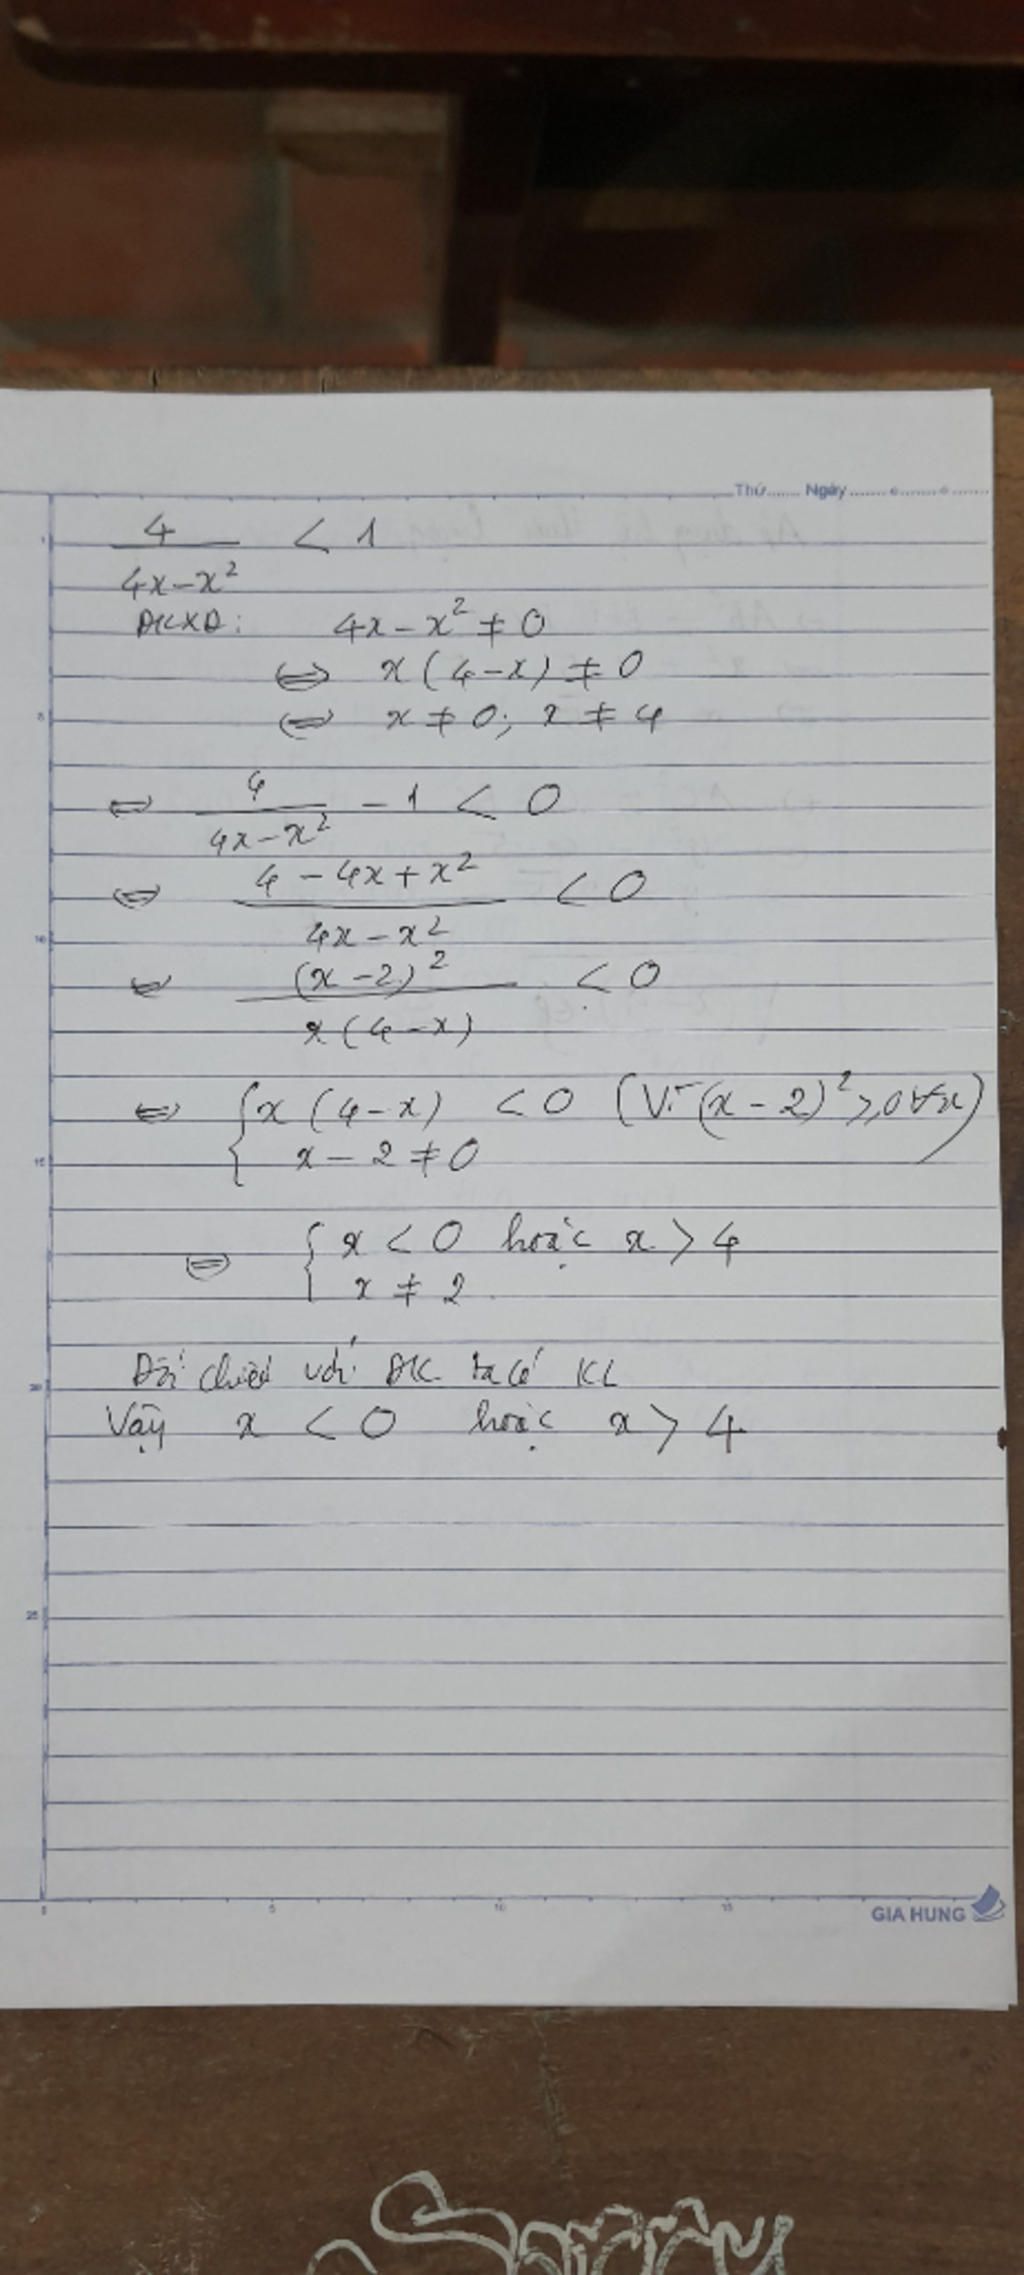 Thứ....... Ngày........ 
4/(4x-x²) < 1
ĐKXĐ: 4x-x² ≠ 0
⇔ x(4-x) ≠ 0
⇔ x ≠ 0; x ≠ 4
⇔ 4/(4x-x²) - 1 < 0
⇔ (4-4x+x²)/(4x-x²) < 0
⇔ (x-2)²/(x(4-x)) < 0
⇔ { x(4-x) < 0 (Vì (x-2)² ≥ 0 ∀x)
x-2 ≠ 0
⇔ { x < 0 hoặc x > 4
x ≠ 2
Đối chiếu với ĐK ta có KL
Vậy x < 0 hoặc x > 4
GIA HUNG
Sorry